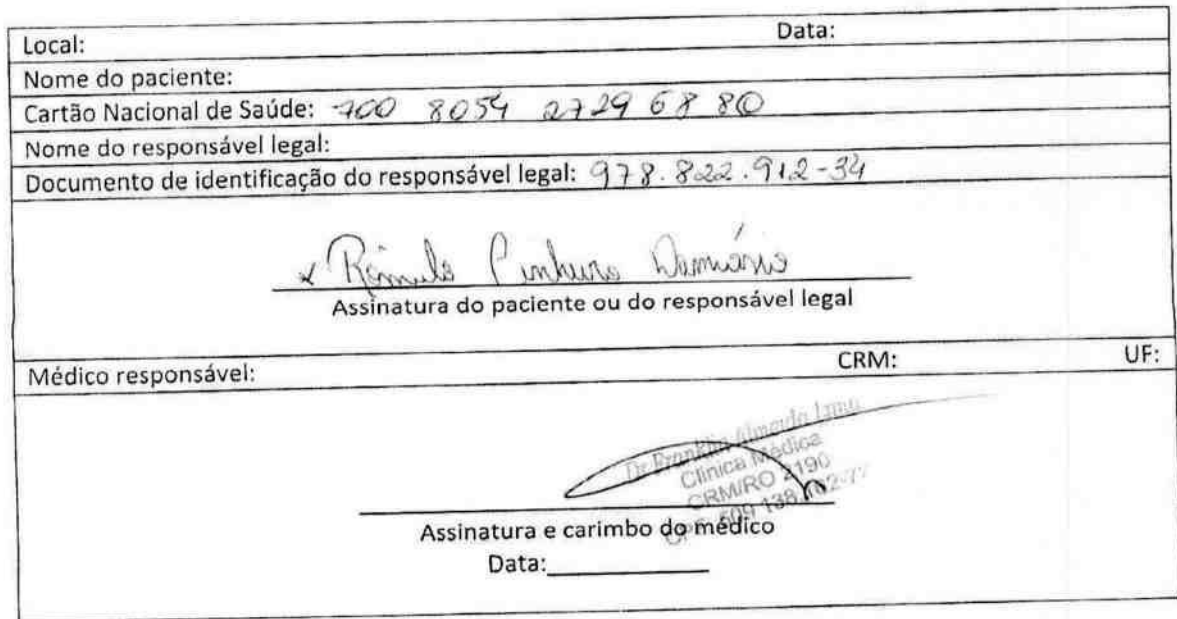 Local: Data:
Nome do paciente:
Cartão Nacional de Saúde: 700 8054 2729 6880
Nome do responsável legal:
Documento de identificação do responsável legal: 978.822.912-34
x Rômulo Pinheiro Damiário
Assinatura do paciente ou do responsável legal
Médico responsável: CRM: UF:
Dr Franklin Almeida Lima
Clínica Médica
CRM/RO 2190
CPF 509 138
Assinatura e carimbo do médico
Data: